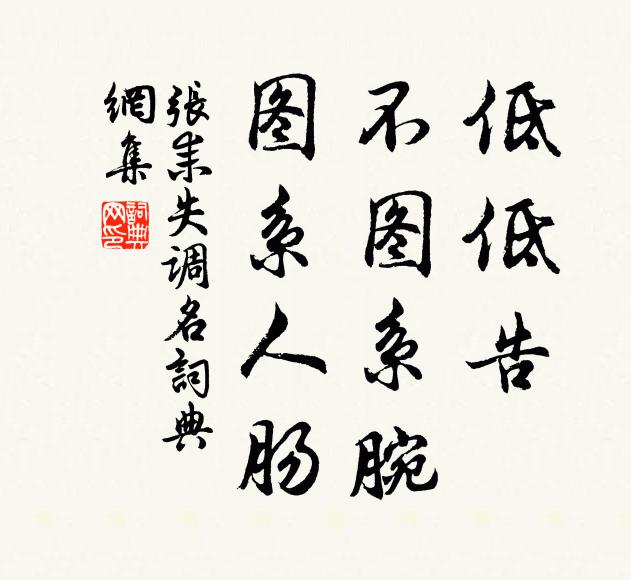 低低告
不图系腕
图系人肠
張耒失调名詞典
網集
詞典网印